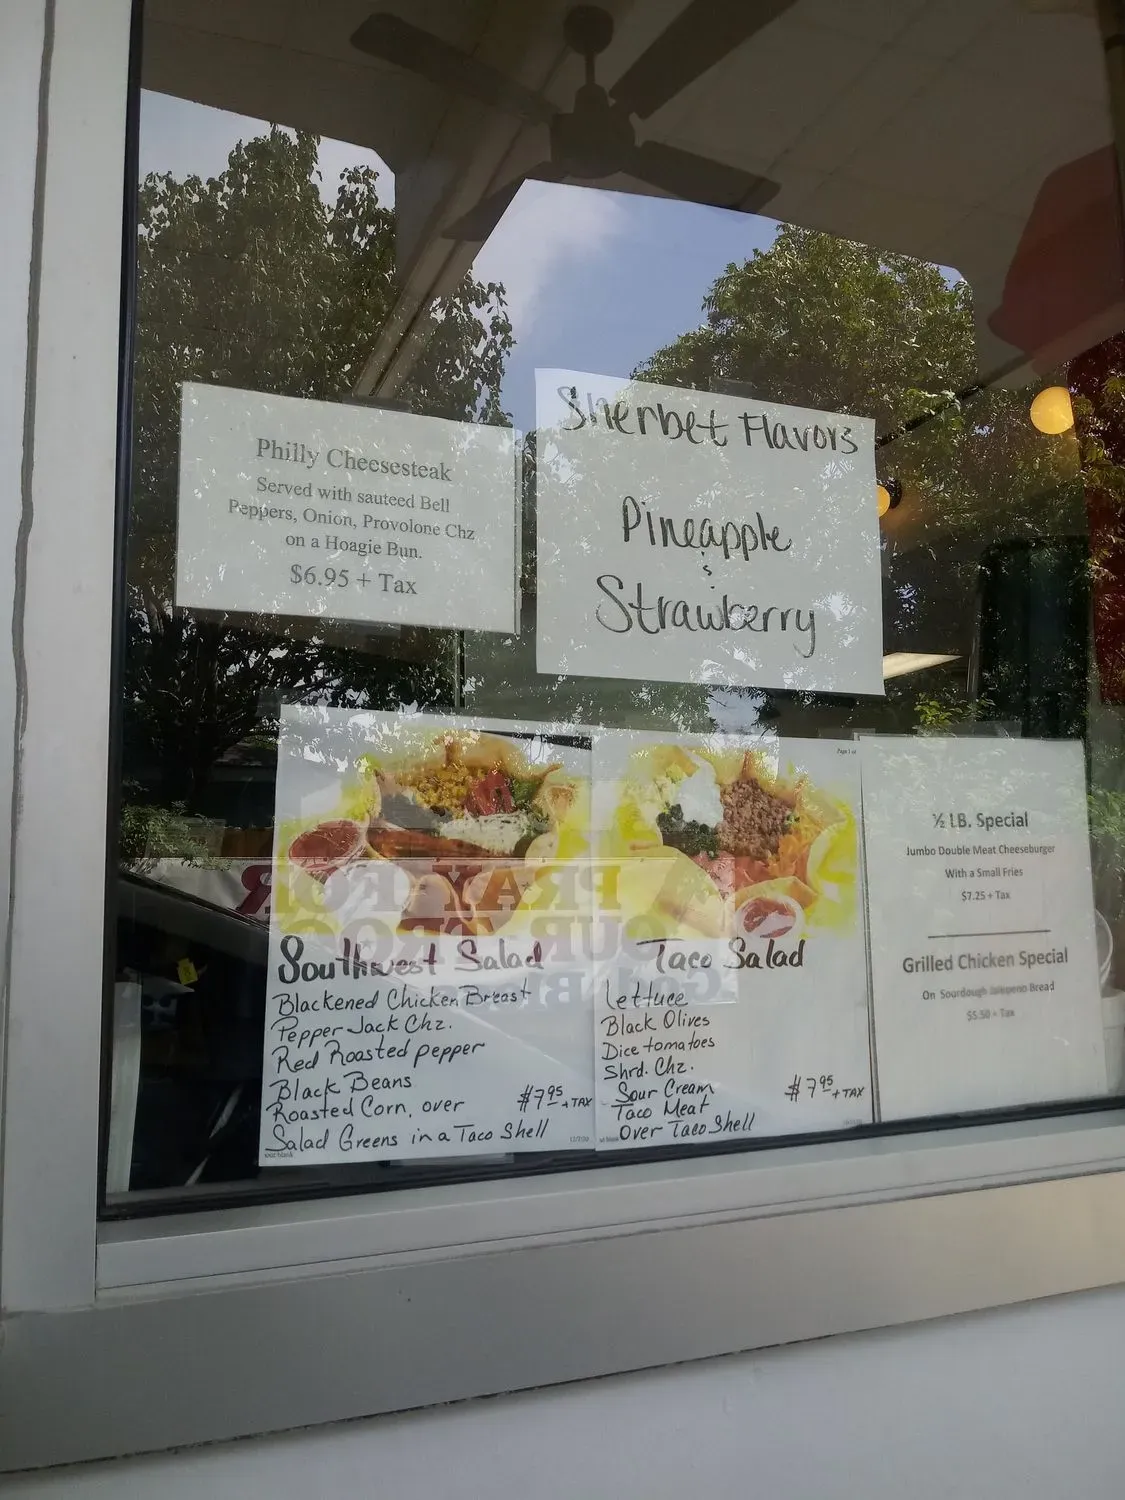 Philly Cheesesteak
Served with sauteed Bell
Peppers, Onion, Provolone Chz
on a Hoagie Bun.
$6.95 + Tax
Sherbet Flavors
Pineapple
&
Strawberry
Southwest Salad
Blackened Chicken Breast
Pepper Jack Chz.
Red Roasted pepper
Black Beans
Roasted Corn, over
Salad Greens in a Taco Shell
$7.95 + TAX
12/7/20
Page 1 of
Taco Salad
Lettuce
Black Olives
Dice tomatoes
Shrd. Chz.
Sour Cream
Taco Meat
Over Taco Shell
$7.95 + TAX
½ LB. Special
Jumbo Double Meat Cheeseburger
With a Small Fries
$7.25 + Tax
Grilled Chicken Special
On Sourdough Jalapeno Bread
$5.50 + Tax
PRAY FOR
OUR
God Bless